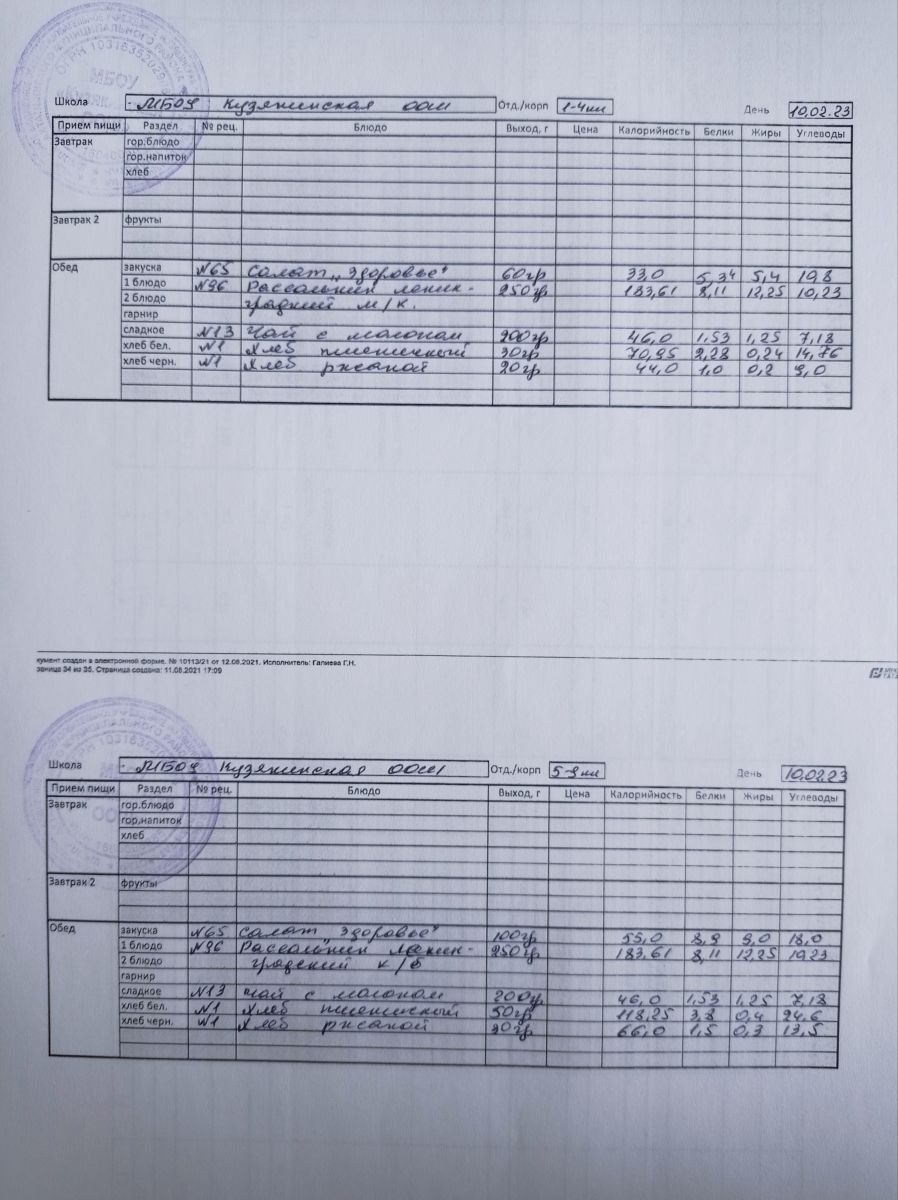 МБОУ
ОГРН 103163520
Школа МБОУ Кузякинская ООШ Отд./корп 1-4 кл День 10.02.23
Прием пищи Раздел № рец. Блюдо Выход, г Цена Калорийность Белки Жиры Углеводы
Завтрак гор.блюдо
гор.напиток
хлеб
Завтрак 2 фрукты
Обед закуска №65 Салат „Здоровье" 60гр 33,0 5,34 5,4 19,8
1 блюдо №96 Рассольник ленин- 250гр 183,61 8,11 12,25 10,23
2 блюдо градский м/к.
гарнир
сладкое №13 Чай с молоком 200гр 46,0 1,53 1,25 7,18
хлеб бел. №1 Хлеб пшеничный 30гр 70,95 2,28 0,24 14,76
хлеб черн. №1 Хлеб ржаной 20гр 44,0 1,0 0,2 9,0
кумент создан в электронной форме. № 10113/21 от 12.08.2021. Исполнитель: Галиева Г.Н.
раница 34 из 35. Страница создана: 11.08.2021 17:09
Школа МБОУ Кузякинская ООШ Отд./корп 5-9 кл День 10.02.23
Прием пищи Раздел № рец. Блюдо Выход, г Цена Калорийность Белки Жиры Углеводы
Завтрак гор.блюдо
гор.напиток
хлеб
Завтрак 2 фрукты
Обед закуска №65 Салат „Здоровье" 100гр 55,0 8,9 9,0 18,0
1 блюдо №96 Рассольник ленин- 250гр 183,61 8,11 12,25 10,23
2 блюдо градский к/б
гарнир
сладкое №13 Чай с молоком 200гр 46,0 1,53 1,25 7,18
хлеб бел. №1 Хлеб пшеничный 50гр 118,25 3,8 0,4 24,6
хлеб черн. №1 Хлеб ржаной 30гр 66,0 1,5 0,3 13,5